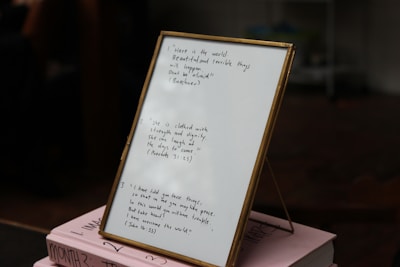 1 "Here is the world.
Beautiful and terrible things
will happen.
Don't be afraid"
2 "She is clothed with
strength and dignity
she can laugh at
the days to come"
(Proverbs 31:25)
3 "I have told you these things,
so that in me you may have peace.
In this world you will have trouble.
But take heart!
I have overcome the world"
(John 16:33)
MONTH